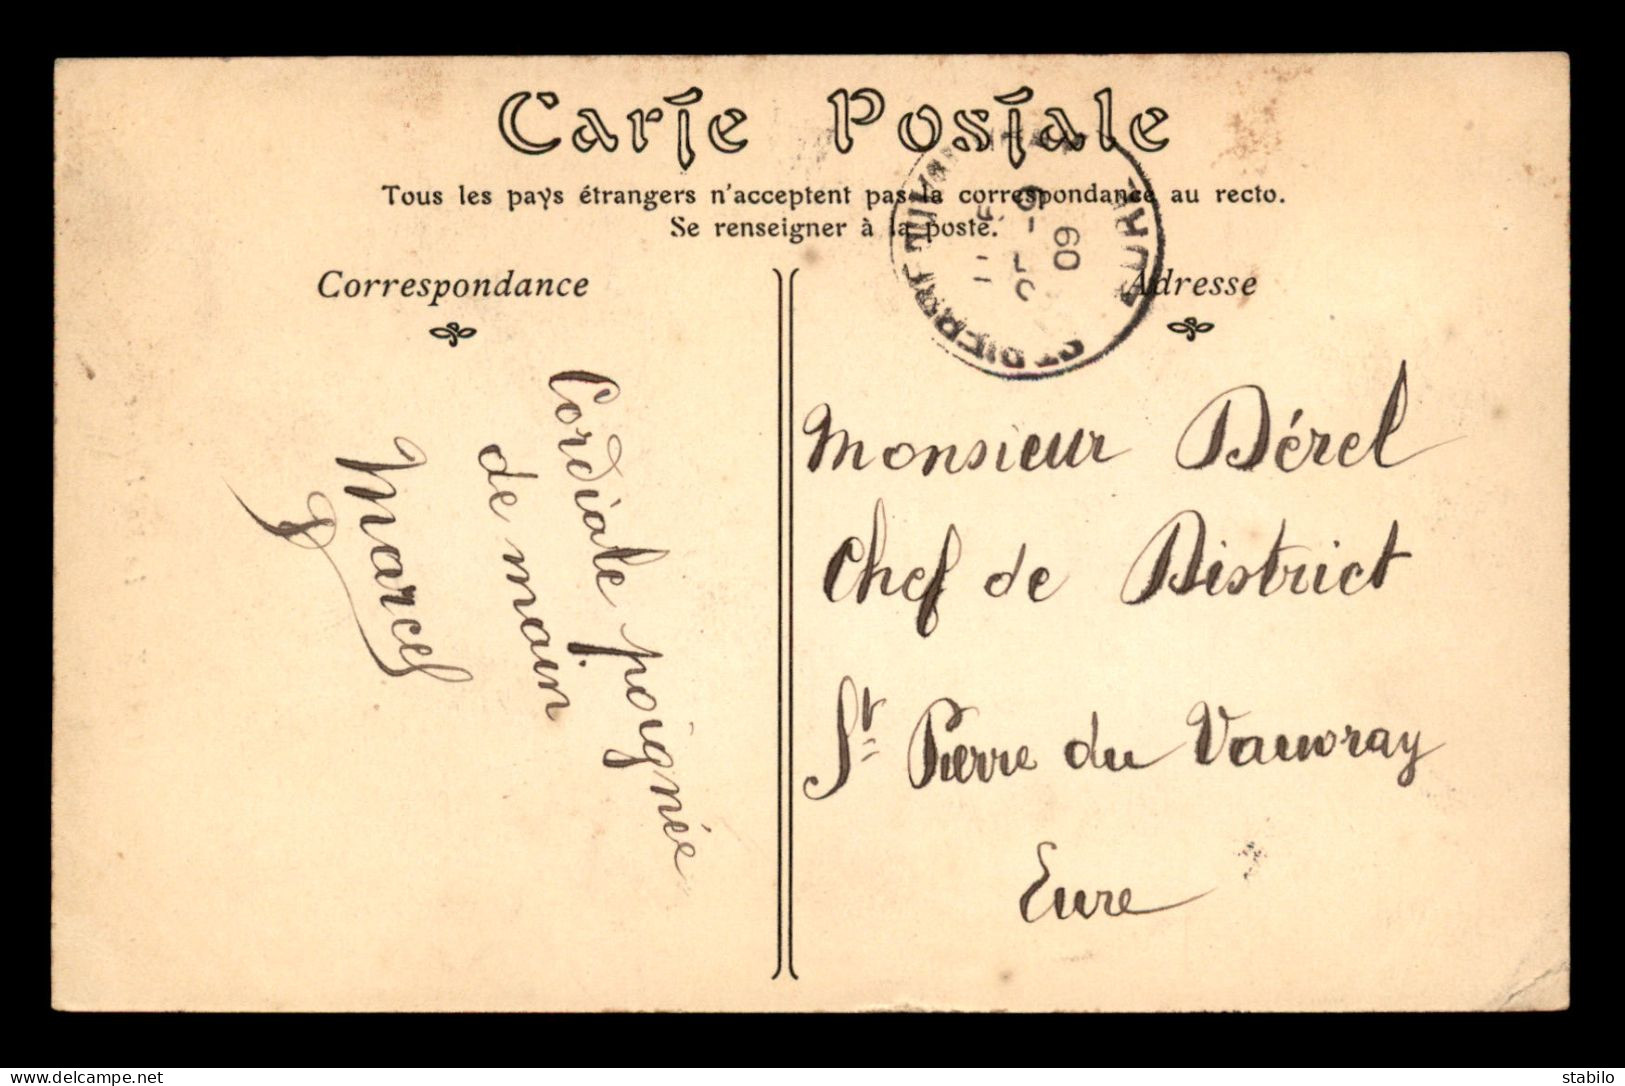 Carte Postale
Tous les pays étrangers n'acceptent pas la correspondance au recto.
Se renseigner à la poste.
Correspondance
Cordiale poignée
de main
Marcel
Adresse
Monsieur Dérel
Chef de District
St Pierre du Vauvray
Eure
ST PIERRE
EURE
09
stabilo